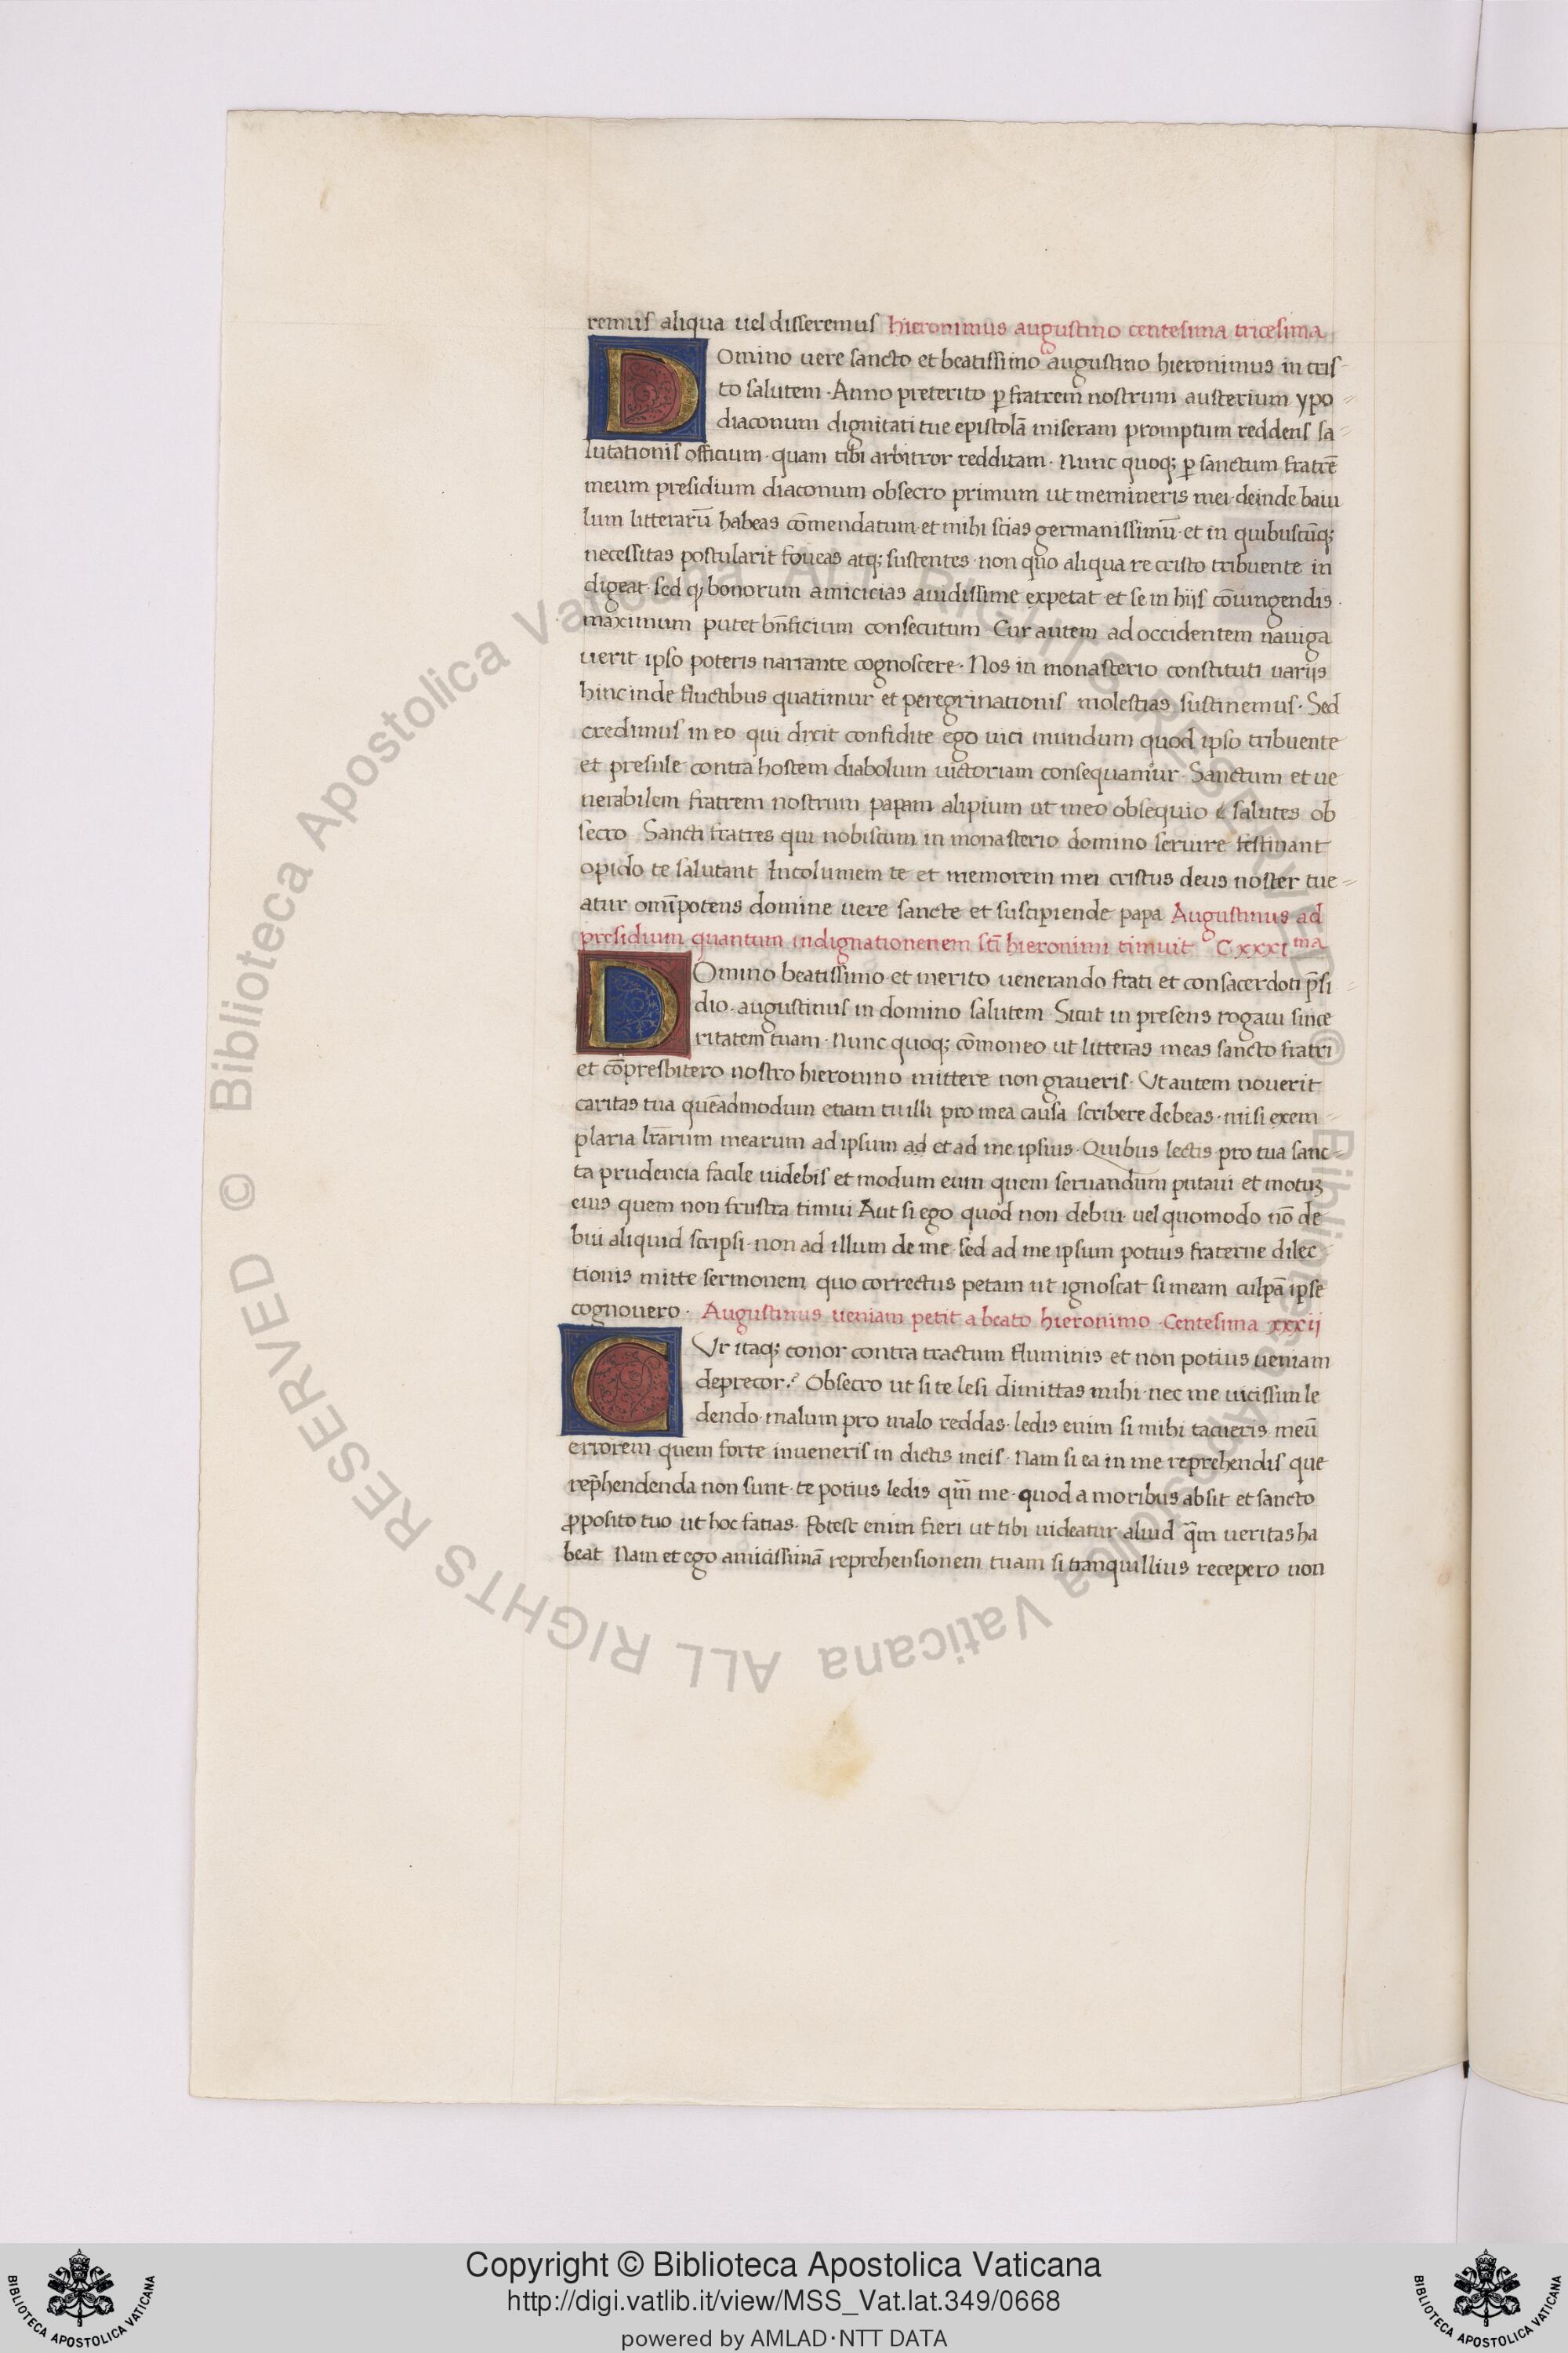 remus aliqua uel disseremus hieronimus augustino centesima tricesima
Domino uere sancto et beatissimo augustino hieronimus in cris-
to salutem · Anno preterito ꝑ fratrem nostrum austerium ypo=
diaconum dignitati tue epistolā miseram promptum reddens sa=
lutationis officium · quam tibi arbitror redditam · Nunc quoq; ꝑ sanctum fratrē
meum presidium diaconum obsecro primum ut memineris mei · deinde baiu
lum litterarū habeas cōmendatum · et mihi scias germanissimū · et in quibuscūq;
necessitas postularit foueas atq; sustentes · non quo aliqua re cristo tribuente in
digeat · sed ꝙ bonorum amicicias auidissime expetat et se in hijs cōiungendis ·
maximum putet bn̄ficium consecutum · Cur autem ad occidentem nauiga
uerit · ipso poteris narrante cognoscere · Nos in monasterio constituti uarijs
hinc inde fluctibus quatimur et peregrinationis molestias sustinemus · Sed
credimus in eo qui dixit confidite ego uici mundum quod ipso tribuente
et presule contra hostem diabolum uictoriam consequamur · Sanctum et ue
nerabilem fratrem nostrum papam alipium ut meo obsequio salutes ob
secro Sancti fratres qui nobiscum in monasterio domino seruire festinant
opido te salutant Incolumem te et memorem mei cristus deus noster tue=
atur omīpotens domine uere sancte et suscipiende papa Augustinus ad
presidium quantum indignationenem sctī hieronimi timuit CxxxIma
Domino beatissimo et merito uenerando frati et consacerdoti p̄si
dio · augustinus in domino salutem · Sicut in presens rogaui since
ritatem tuam · Nunc quoq; cōmoneo ut litteras meas sancto fratri
et cōpresbitero nostro hieronimo mittere non graueris · Ut autem nouerit
caritas tua quēadmodum etiam tu illi pro mea causa scribere debeas · misi exem
plaria lr̄arum mearum ad ipsum ad et ad me ipsius · Quibus lectis pro tua sanc=
ta prudencia facile uidebis et modum eum quem seruandum putaui et motuꝫ
eius quem non frustra timui Aut si ego quod non debui uel quomodo nō de
bui aliquid scripsi · non ad illum de me · sed ad me ipsum potius fraterne dilec
tionis mitte sermonem quo correctus petam ut ignoscat si meam culpā ipse
cognouero · Augustinus ueniam petit a beato hieronimo · Centesima xxxij
CUr itaq; conor contra tractum fluminis et non potius ueniam
deprecor? Obsecro ut si te lesi dimittas mihi · nec me uicissim le
dendo · malum pro malo reddas · ledis enim si mihi tacueris meū
errorem quem forte inueneris in dictis meis · Nam si ea in me reprehendis que
rep̄hendenda non sunt · te potius ledis qm̄ me · quod a moribus absit et sancto
ꝓposito tuo ut hoc facias · Potest enim fieri ut tibi uideatur aliud qm̄ ueritas ha
beat Nam et ego amicissimā reprehensionem tuam si tranquillius recepero non
© Biblioteca Apostolica Vaticana ALL RIGHTS RESERVED © Biblioteca Apostolica Vaticana ALL RIGHTS RESERVED
Copyright © Biblioteca Apostolica Vaticana
http://digi.vatlib.it/view/MSS_Vat.lat.349/0668
powered by AMLAD·NTT DATA
BIBLIOTECA APOSTOLICA VATICANA
BIBLIOTECA APOSTOLICA VATICANA